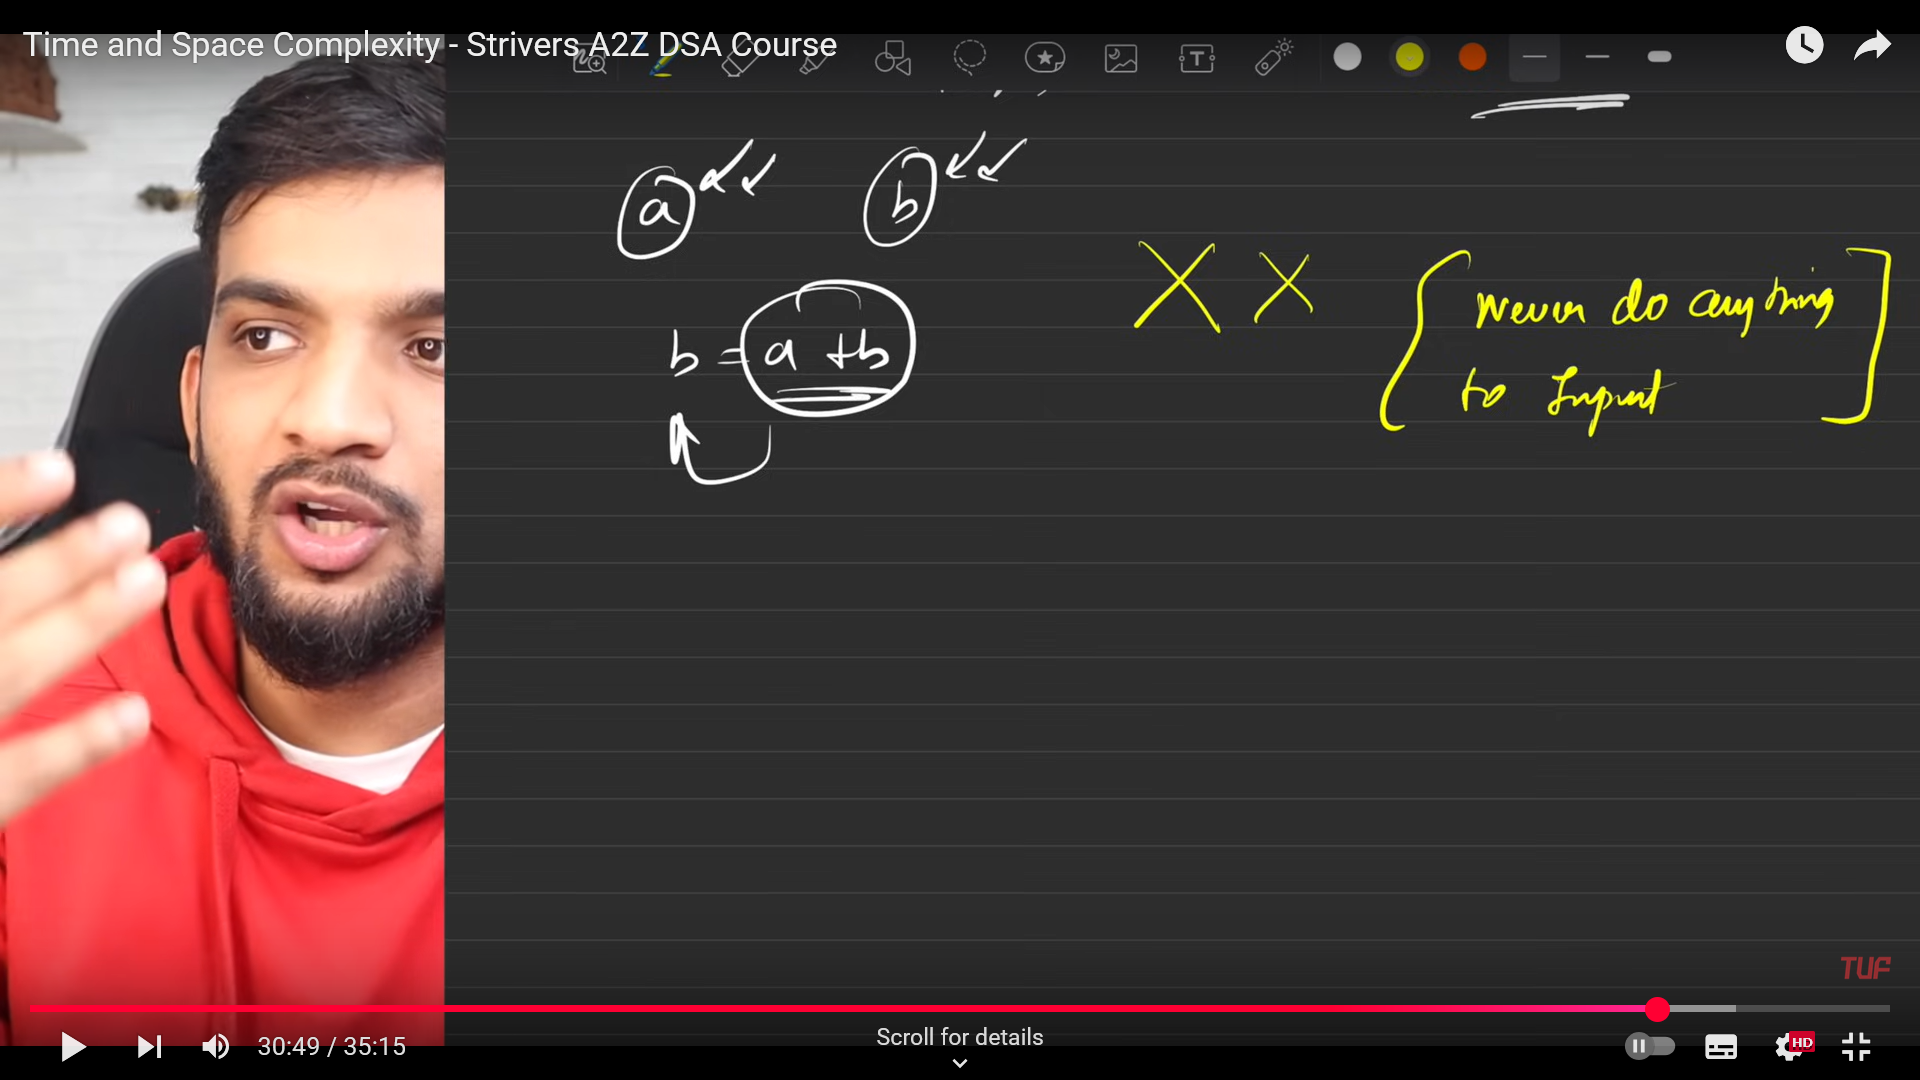 Time and Space Complexity - Strivers A2Z DSA Course
T
a b
b = a + b
Never do anything
to Input
TUF
30:49 / 35:15
Scroll for details
HD